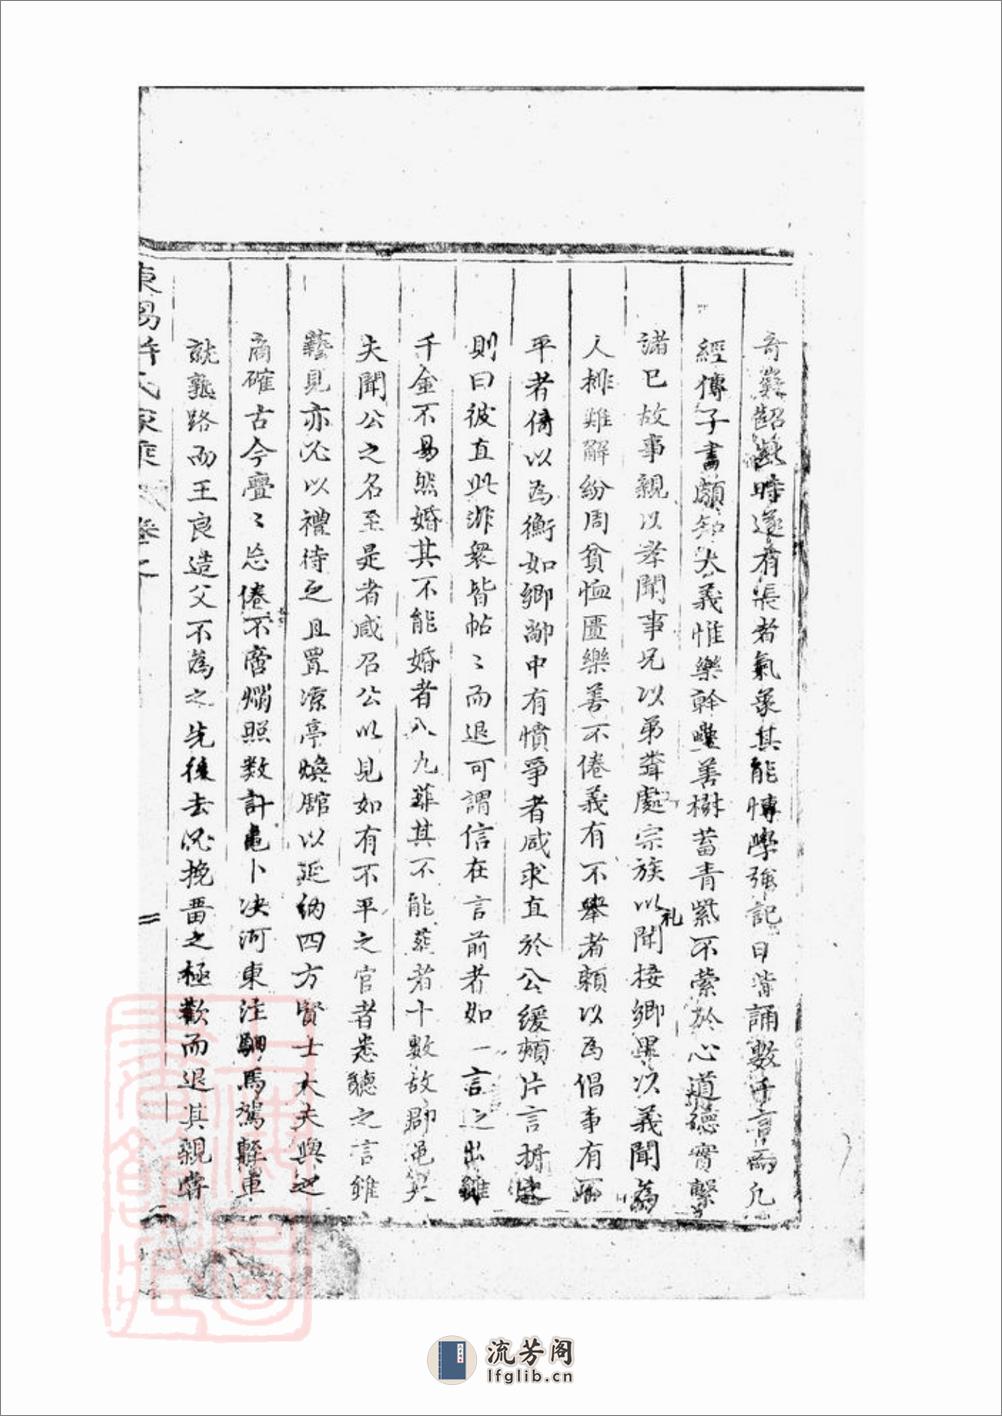 奇嶷齠齔時遂有漲者氣象其能博學強記日嘗誦數千言而凡
經傳子書頗知大義惟樂幹蠱善樹蓄青紫不縈於心道德實繫
諸已故事親以孝聞事兄以弟聳處宗族以礼聞接鄉里以義聞為
人排难解紛周貧恤匱樂善不倦義有不舉者賴以為倡事有不
平者倚以為衡如鄉鄰中有憤爭者咸求直於公緩頰片言折
則曰彼直此非衆皆帖〻而退可謂信在言前者如一言之出雖
千金不易然婚其不能婚者八九葬其不能葬者十數故郡邑大
夫聞公之名至是者咸召公以見如有不平之官者悉聽之言雖
藝見亦必以禮待之且置凉亭煥館以延納四方賢士大夫與之
商確古今亹〻忘倦不啻燭照数計龜卜决河東注駟馬駕輕車
就熟路而王良造父不為之先後去必挽畱之極歡而退其親嘗
東昜許氏家乘 卷之
二
流芳阁
lfglib.cn